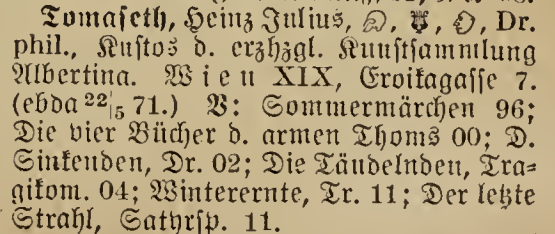 Tomaseth, Heinz Julius, Dr.
phil., Kustos d. erzhzgl. Kunstsammlung
Albertina. Wien XIX, Eroikagasse 7.
(ebda 22/5 71.) V: Sommermärchen 96;
Die vier Bücher d. armen Thoms 00; D.
Sinkenden, Dr. 02; Die Tändelnden, Tra-
gikom. 04; Winterernte, Tr. 11; Der letzte
Strahl, Satyrsp. 11.